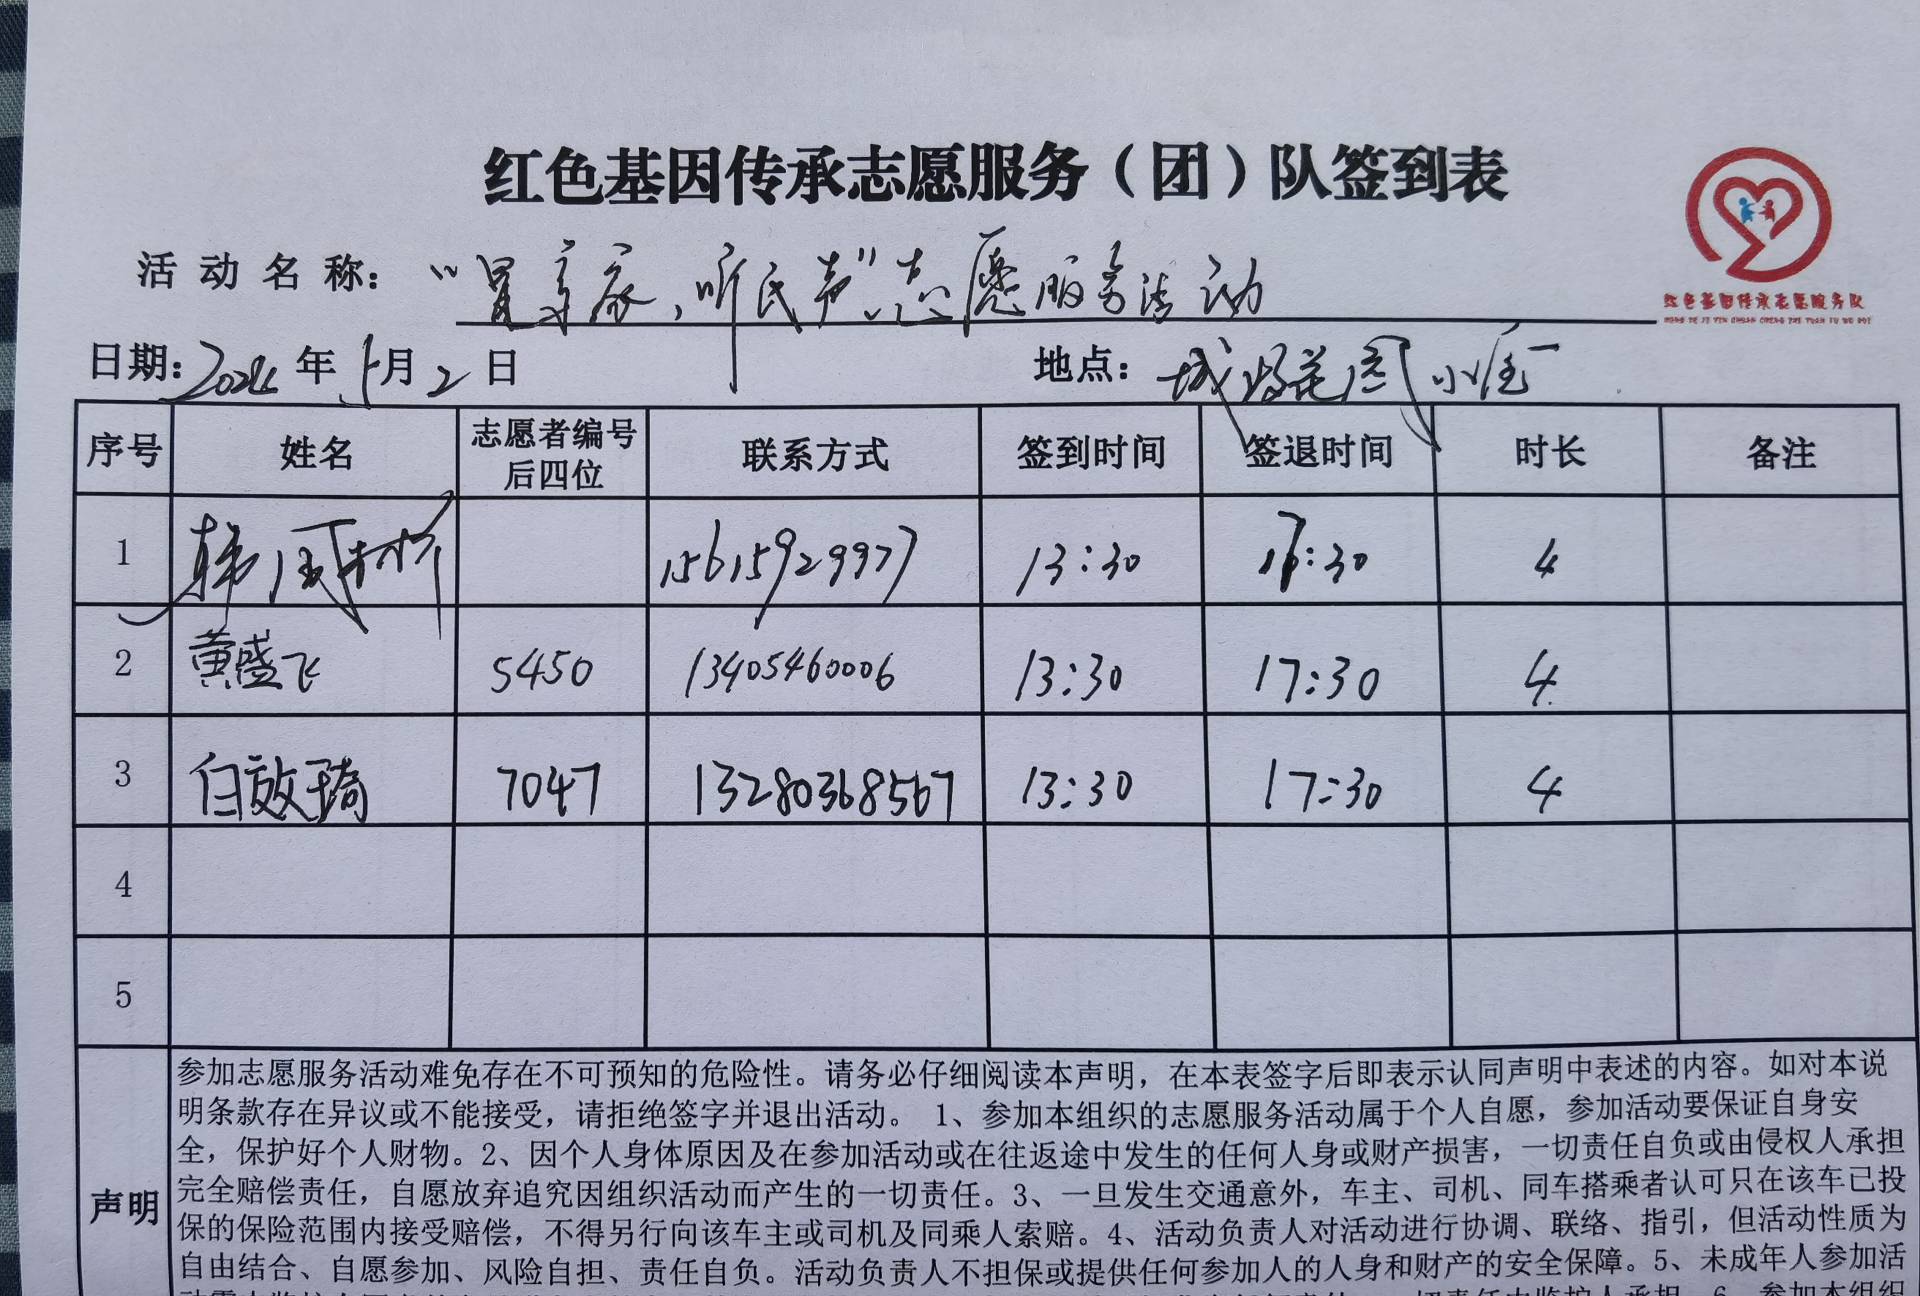 红色基因传承志愿服务（团）队签到表
红色基因传承志愿服务队
活动名称：“置享家，听民声”志愿服务活动
日期：年 月2日 地点：城 花园小区
序号 姓名 志愿者编号后四位 联系方式 签到时间 签退时间 时长 备注
1 韩 15615929977 13:30 17:30 4
2 黄盛飞 5450 13405460006 13:30 17:30 4
3 白效琦 7047 13280368567 13:30 17:30 4
4
5
声明
参加志愿服务活动难免存在不可预知的危险性。请务必仔细阅读本声明，在本表签字后即表示认同声明中表述的内容。如对本说
明条款存在异议或不能接受，请拒绝签字并退出活动。 1、参加本组织的志愿服务活动属于个人自愿，参加活动要保证自身安
全，保护好个人财物。2、因个人身体原因及在参加活动或在往返途中发生的任何人身或财产损害，一切责任自负或由侵权人承担
完全赔偿责任，自愿放弃追究因组织活动而产生的一切责任。3、一旦发生交通意外，车主、司机、同车搭乘者认可只在该车已投
保的保险范围内接受赔偿，不得另行向该车主或司机及同乘人索赔。4、活动负责人对活动进行协调、联络、指引，但活动性质为
自由结合、自愿参加、风险自担、责任自负。活动负责人不担保或提供任何参加人的人身和财产的安全保障。5、未成年人参加活